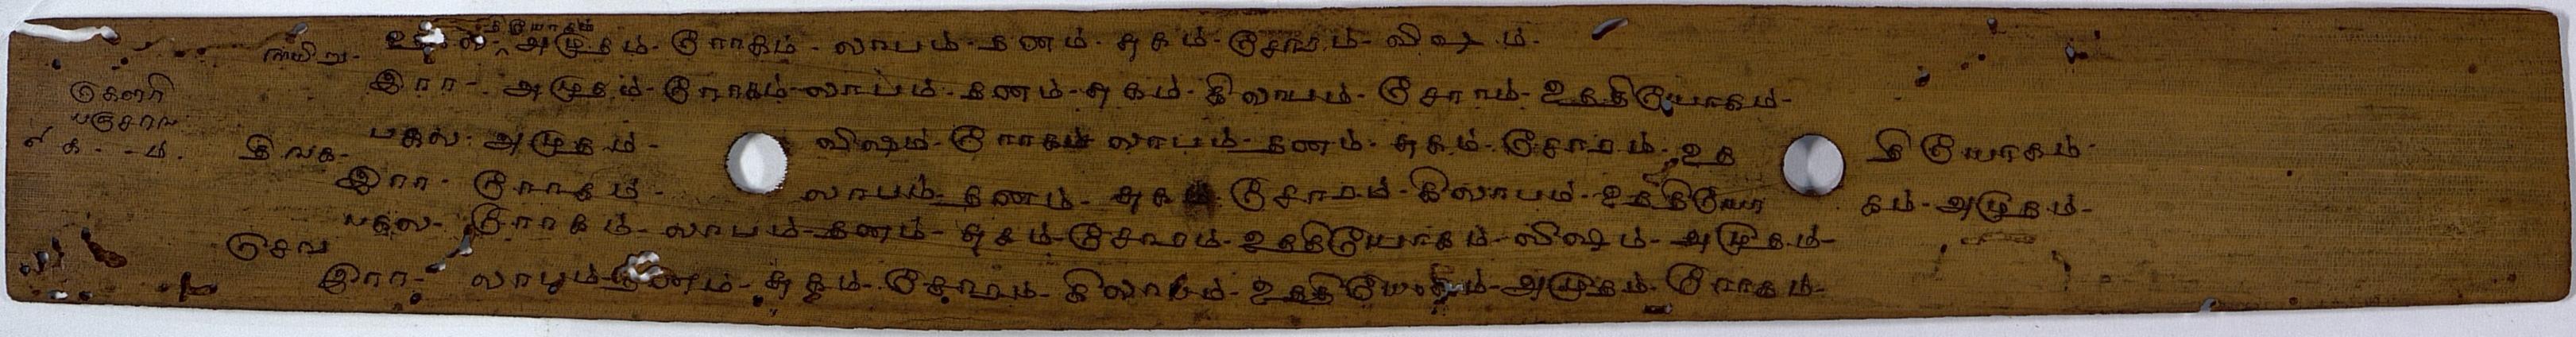 தியோகம்
ஞாயிறு- உத ல. அமுதம்- ரோகம்- லாபம்- தனம்- சுகம்- சோரம்- விஷம்-
இரா- அமுதம்- ரோகம்- லாபம்- தனம்- சுகம்- கிலாபம்- சோரம்- உத்தியோகம்-
கெளரி
பஞ்சாங
பகல- அமுதம்- விஷம்- ரோகம் லாபம்- தனம்- சுகம்- சோரம்- உத தியோகம்-
திங்க-
இரா- ரோகம்- லாபம்- தனம்- சுகம்- சோரம்- கிலாபம்- உததியோ கம்- அமுதம்-
பகல- ரோகம்- லாபம்- தனம்- சுகம்- சோரம்- உததியோகம்- விஷம்- அமுதம்-
செவ
இரா- லாபம்- தனம்- சுகம்- சோரம்- கிலாபம்- உததியோகம்- அமுதம்- ரோகம்-